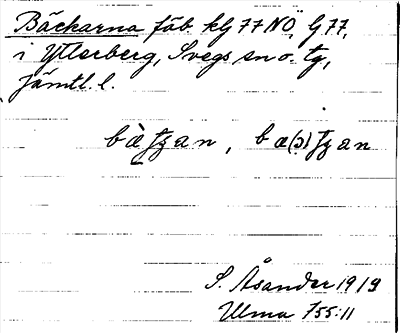 Bäckarna fäb. kbg 77 NÖ, G 77,
i Ytterberg, Svegs sn o. tg,
Jämtl. l.
S. Åsander 1919
Ulma 755:11